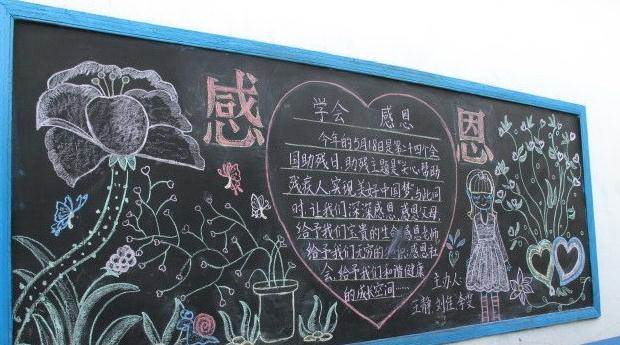 感 恩
学会 感恩
今年的5月18日是第二十四个全
国助残日,助残主题是"关心帮助
残疾人,实现美好中国梦"与此同
时,让我们深深感恩,感恩父母,
给予我们宝贵的生命,感恩老师
给予我们无穷的知识,感恩社
会,给予我们和谐健康
的成长空间……
主办人:
王静,刘佳,李莹